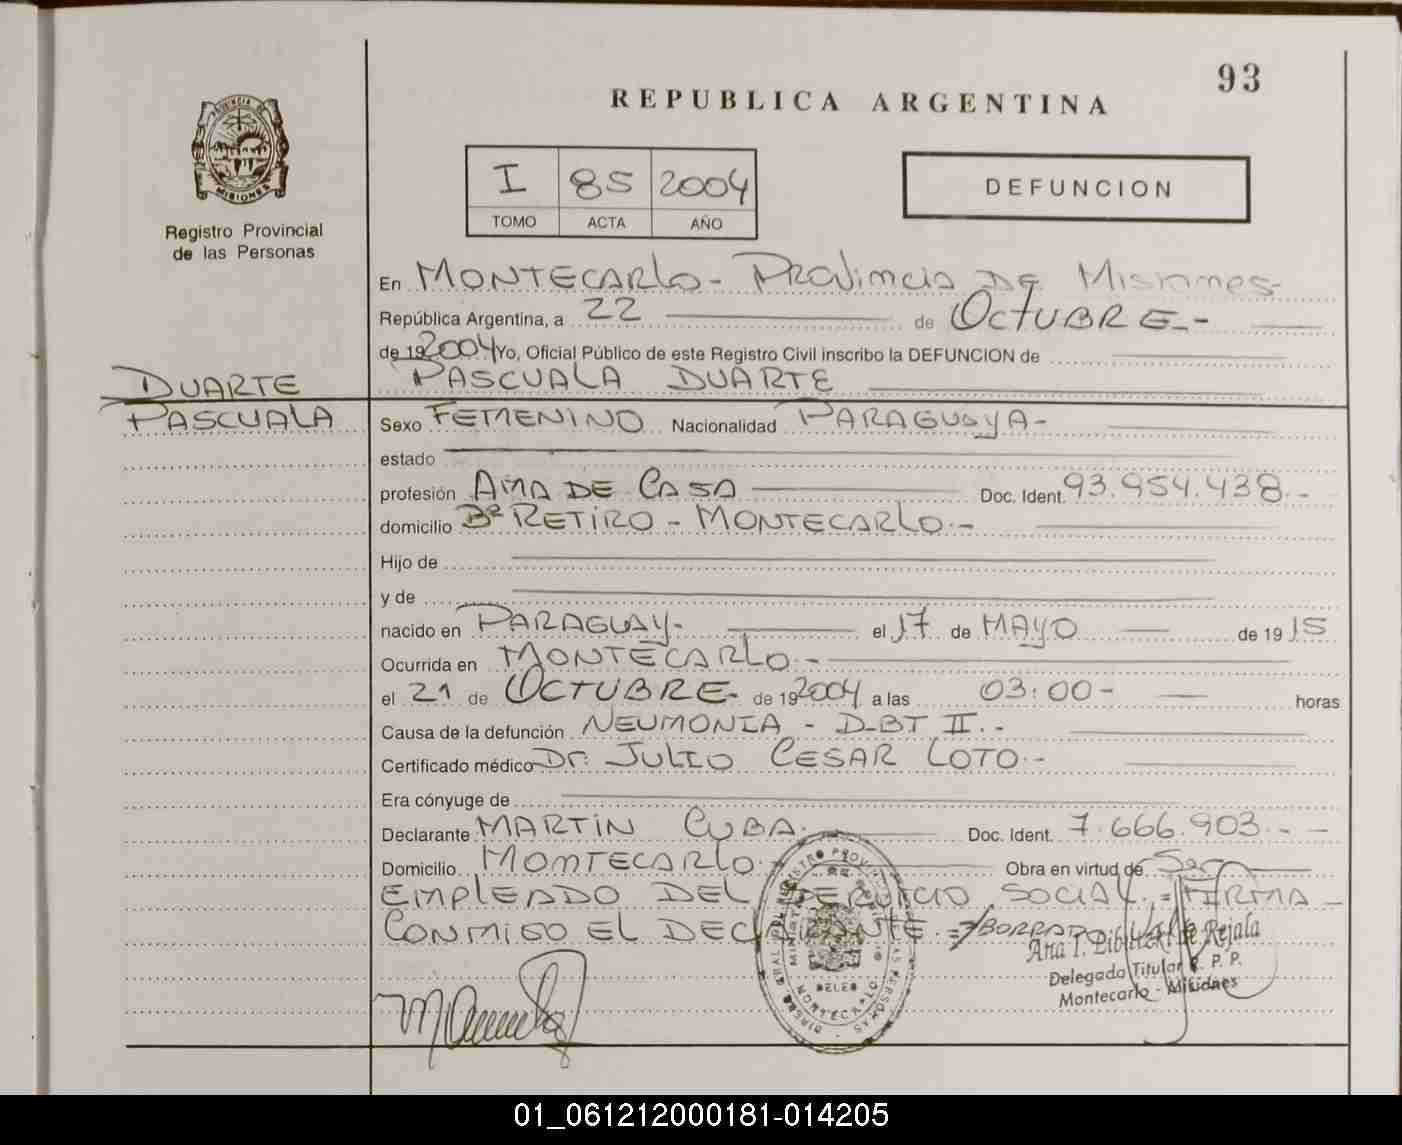 93
REPUBLICA ARGENTINA
PROVINCIA DE
MISIONES
Registro Provincial
de las Personas
I 85 2004
TOMO ACTA AÑO
DEFUNCION
En MONTECARLO - PROVINCIA DE MISIONES
República Argentina, a 22 de OCTUBRE.-
de 19 2004 Yo, Oficial Público de este Registro Civil inscribo la DEFUNCION de
PASCUALA DUARTE
DUARTE
PASCUALA
Sexo FEMENINO Nacionalidad PARAGUAYA-
estado
profesión AMA DE CASA Doc. Ident. 93.954.438.-
domicilio Bº RETIRO - MONTECARLO.-
Hijo de
y de
nacido en PARAGUAY- el 17 de MAYO de 19 15
Ocurrida en MONTECARLO.-
el 21 de OCTUBRE- de 19 2004 a las 03:00- horas
Causa de la defunción NEUMONIA - DBT II.-
Certificado médico Dr. JULIO CESAR LOTO.-
Era cónyuge de
Declarante MARTIN CUBA. Doc. Ident. 7.666.903.--
Domicilio MONTECARLO. Obra en virtud de Ser
EMPLEADO DEL SERVICIO SOCIAL.= FIRMA-
CONMIGO EL DECLARANTE.= BORRADO
Delegada Titular R. P. P.
Montecarlo - Misiones
01_061212000181-014205